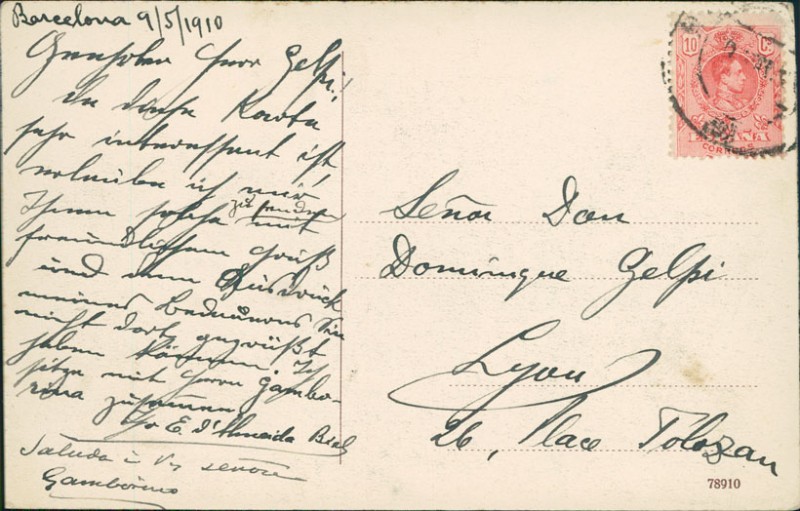 Barcelona 9/5/1910
Geehrter Herr Gelpi!
da diese Karte
sehr interessant ist
erlauben ich mir
Ihnen solche mit
zu senden
freundlichem Gruß
und dem Ausdruck
meines Bedauerns Sie
nicht dort gegrüßt
haben können. Ich
sitze mit Herrn Gambo-
rina zusammen
Ihr E. d'Almeida
Saluda á V.
Gamborino
10 Cs
ESPAÑA
CORREOS
Señor Don
Dominique Gelpi
Lyon
26, Place Tolozan
78910